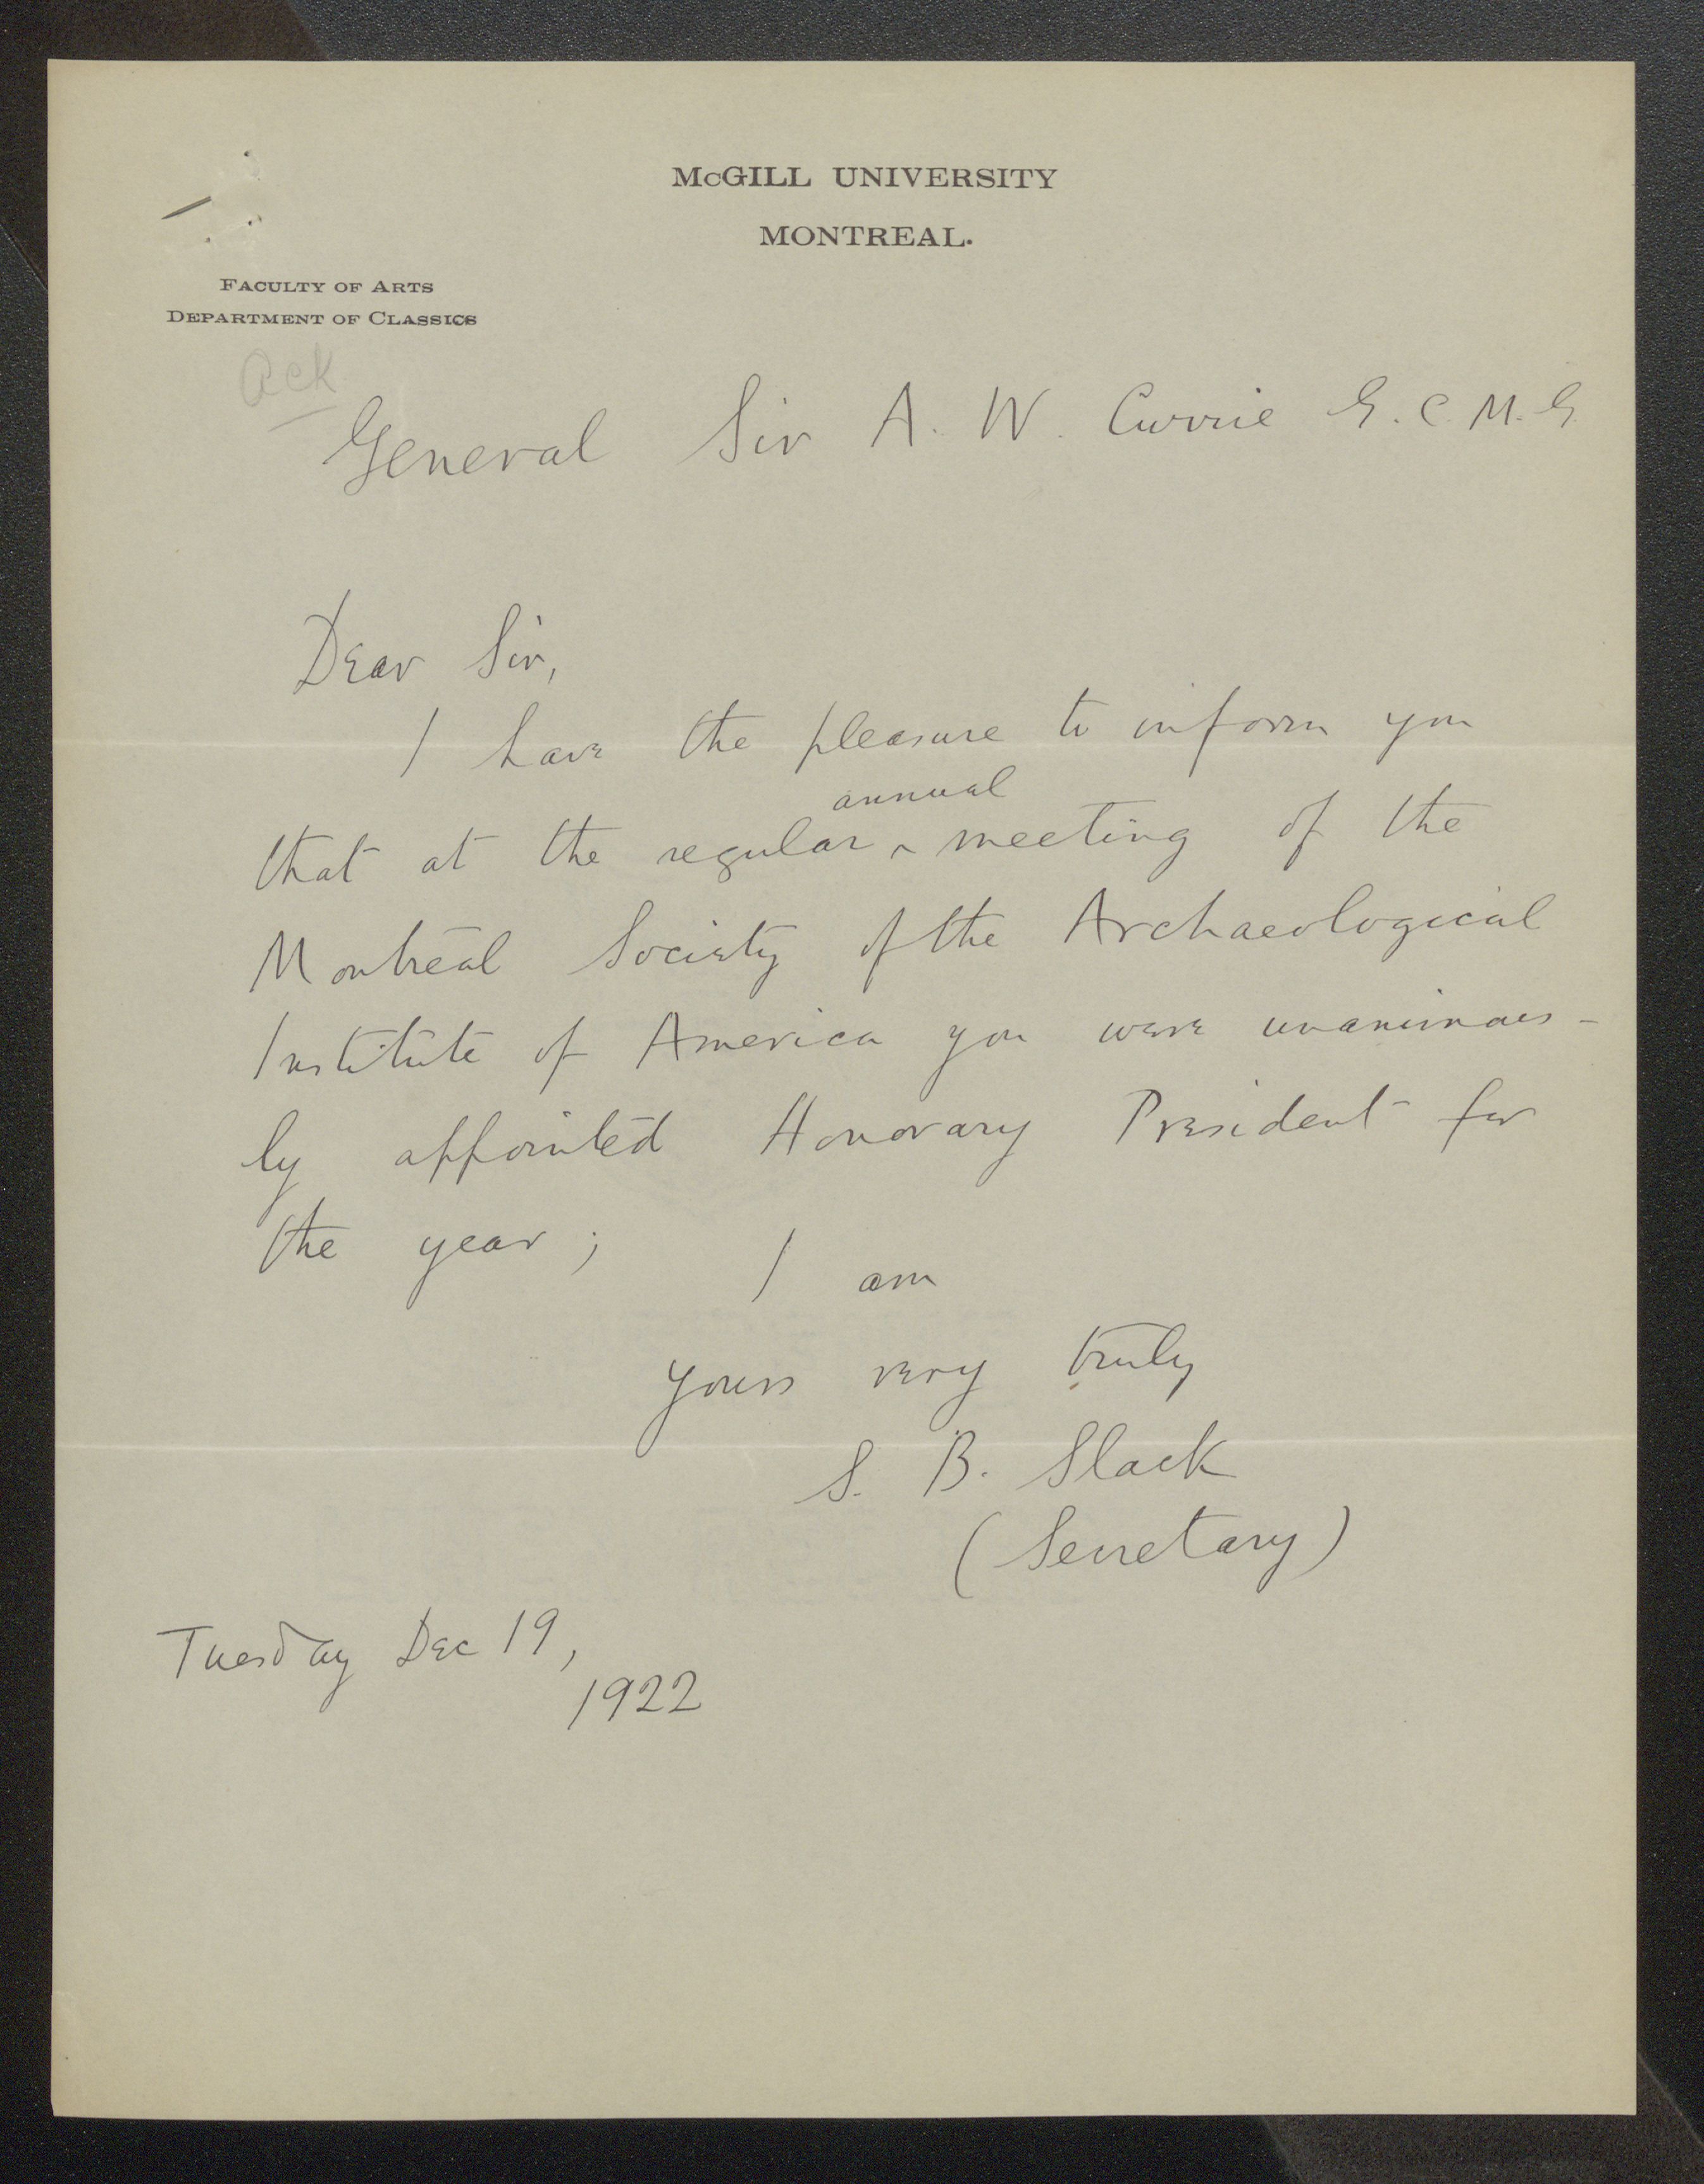 McGILL UNIVERSITY
MONTREAL.
FACULTY OF ARTS
DEPARTMENT OF CLASSICS
Ack
General Sir A. W. Currie G.C.M.G.
Dear Sir,
I have the pleasure to inform you
annual
that at the regular ^ meeting of the
Montreal Society of the Archaeological
Institute of America you were unanimous-
ly appointed Honorary President for
the year; I am
yours very truly
S. B. Slack
(Secretary)
Tuesday Dec 19,
1922